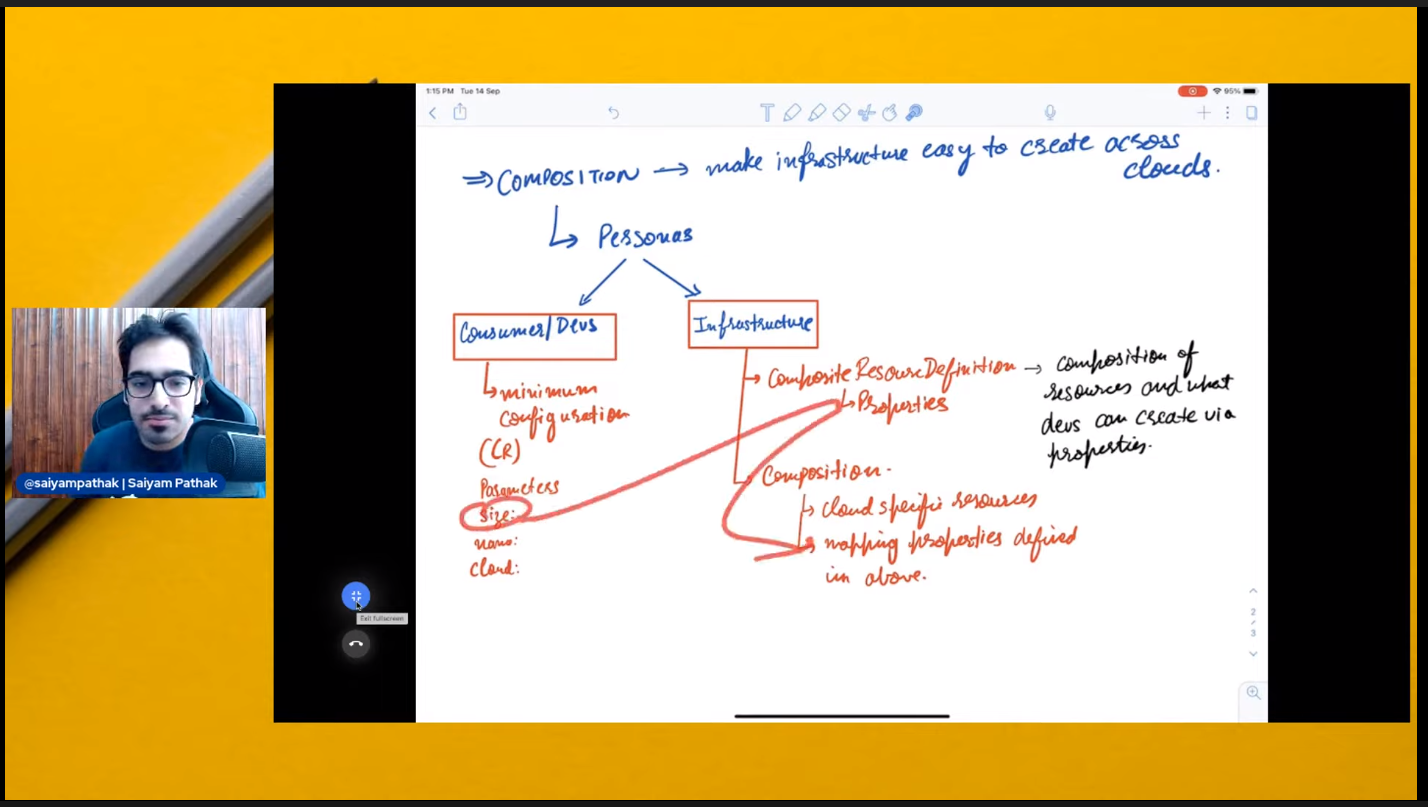 1:15 PM Tue 14 Sep
95%
⇒ COMPOSITION → make infrastructure easy to create across
clouds.
Personas
Consumer/Devs
Infrastructure
minimum
configuration
(CR)
Parameters
size:
name:
cloud:
Composite Resoure Definition →
Properties
composition of
resources and what
devs can create via
properties.
Composition.
cloud specific resources
mapping properties defined
in above.
@saiyampathak | Saiyam Pathak
Exit fullscreen
2
/
3